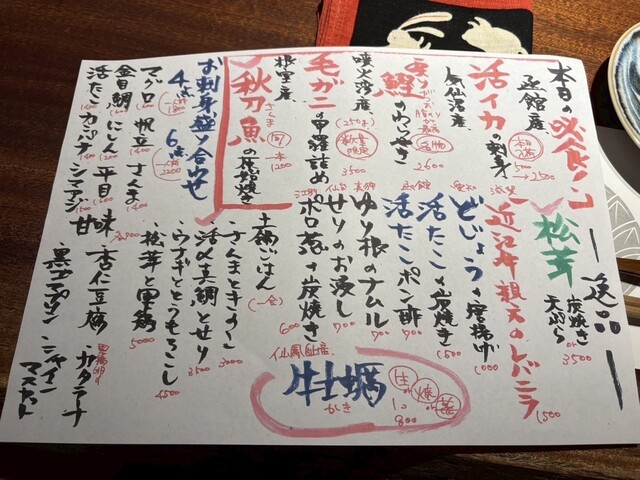 本日の必食!!
函館産
活イカの刺身
2500
気仙沼産
鰹のわらやき
2600
噴火湾産
毛ガニの甲羅詰め
3500
根室産
秋刀魚の炭焼き
さんま
一本
1200
お刺身盛り合わせ
4点
1800
6点
2200
マグロ
帆立
さんま
金目鯛
にしん
平目
活たこ
カンパチ
シマアジ
一逸品一
松茸
炭焼き
or
天ぷら
3500
滋賀
近江牛親父のレバニラ
1500
愛知
どじょうの唐揚げ
1000
活たこの炭焼き
1500
活たこポン酢
900
ゆり根のナムル
700
仙台
せりのお浸し
700
江別
ポロ葱の炭焼き
600
土鍋ごはん
(一合)
さんまときのこ
3000
活〆真鯛とせり
3500
ウナギととうもろこし
4500
松茸と里芋
5000
甘味
杏仁豆腐
カタラーナ
黒ゴマプリン
シャインマスカット
仙鳳趾産
牡蠣
かき
生
or
煉
or
蒸
1コ
800